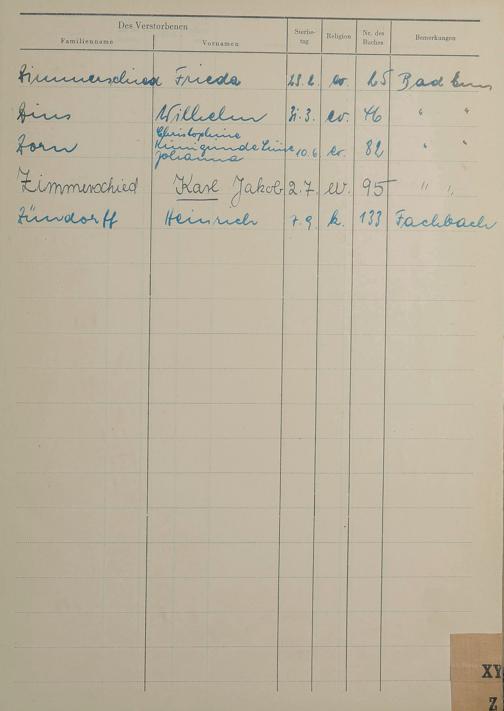 Des Verstorbenen
Familienname Vornamen Sterbe-
tag Religion Nr. des
Buches Bemerkungen
Zimmerschied Frieda 23.2. ev. 25 Bad Ems
Zins Wilhelm 21.3. ev. 46 " "
Zorn Christophine
Kunigunde Luise
Johanna 10.6. ev. 82 " "
Zimmerschied Karl Jakob 2.7. ev. 95 " "
Zündorff Heinrich 7.9. k. 133 Fachbach
XY
Z